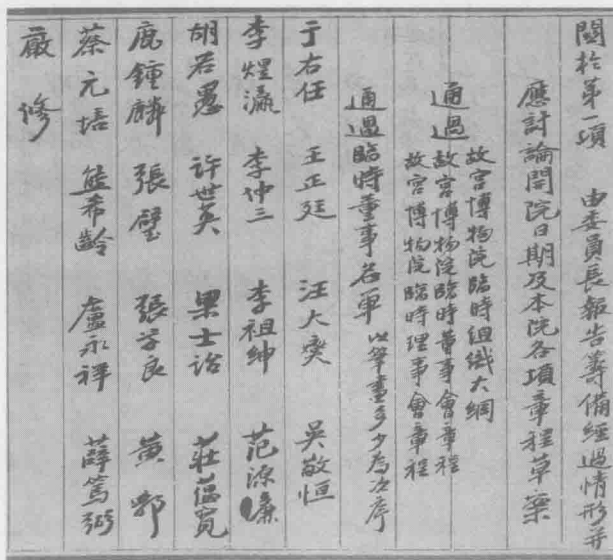 關於第一項 由委員長報告籌備經過情形并
應討論開院日期及本院各項章程草案
故宮博物院臨時組織大綱
通過故宮博物院臨時董事會章程
故宮博物院臨時理事會章程
通過臨時董事名單 以筆畫多少為次序
于右任 王正廷 汪大燮 吳敬恒
李煜瀛 李仲三 李祖紳 范源濂
胡若愚 許世英 梁士詒 莊蘊寬
鹿鍾麟 張璧 張學良 黃郛
蔡元培 熊希齡 盧永祥 薛篤弼
嚴修